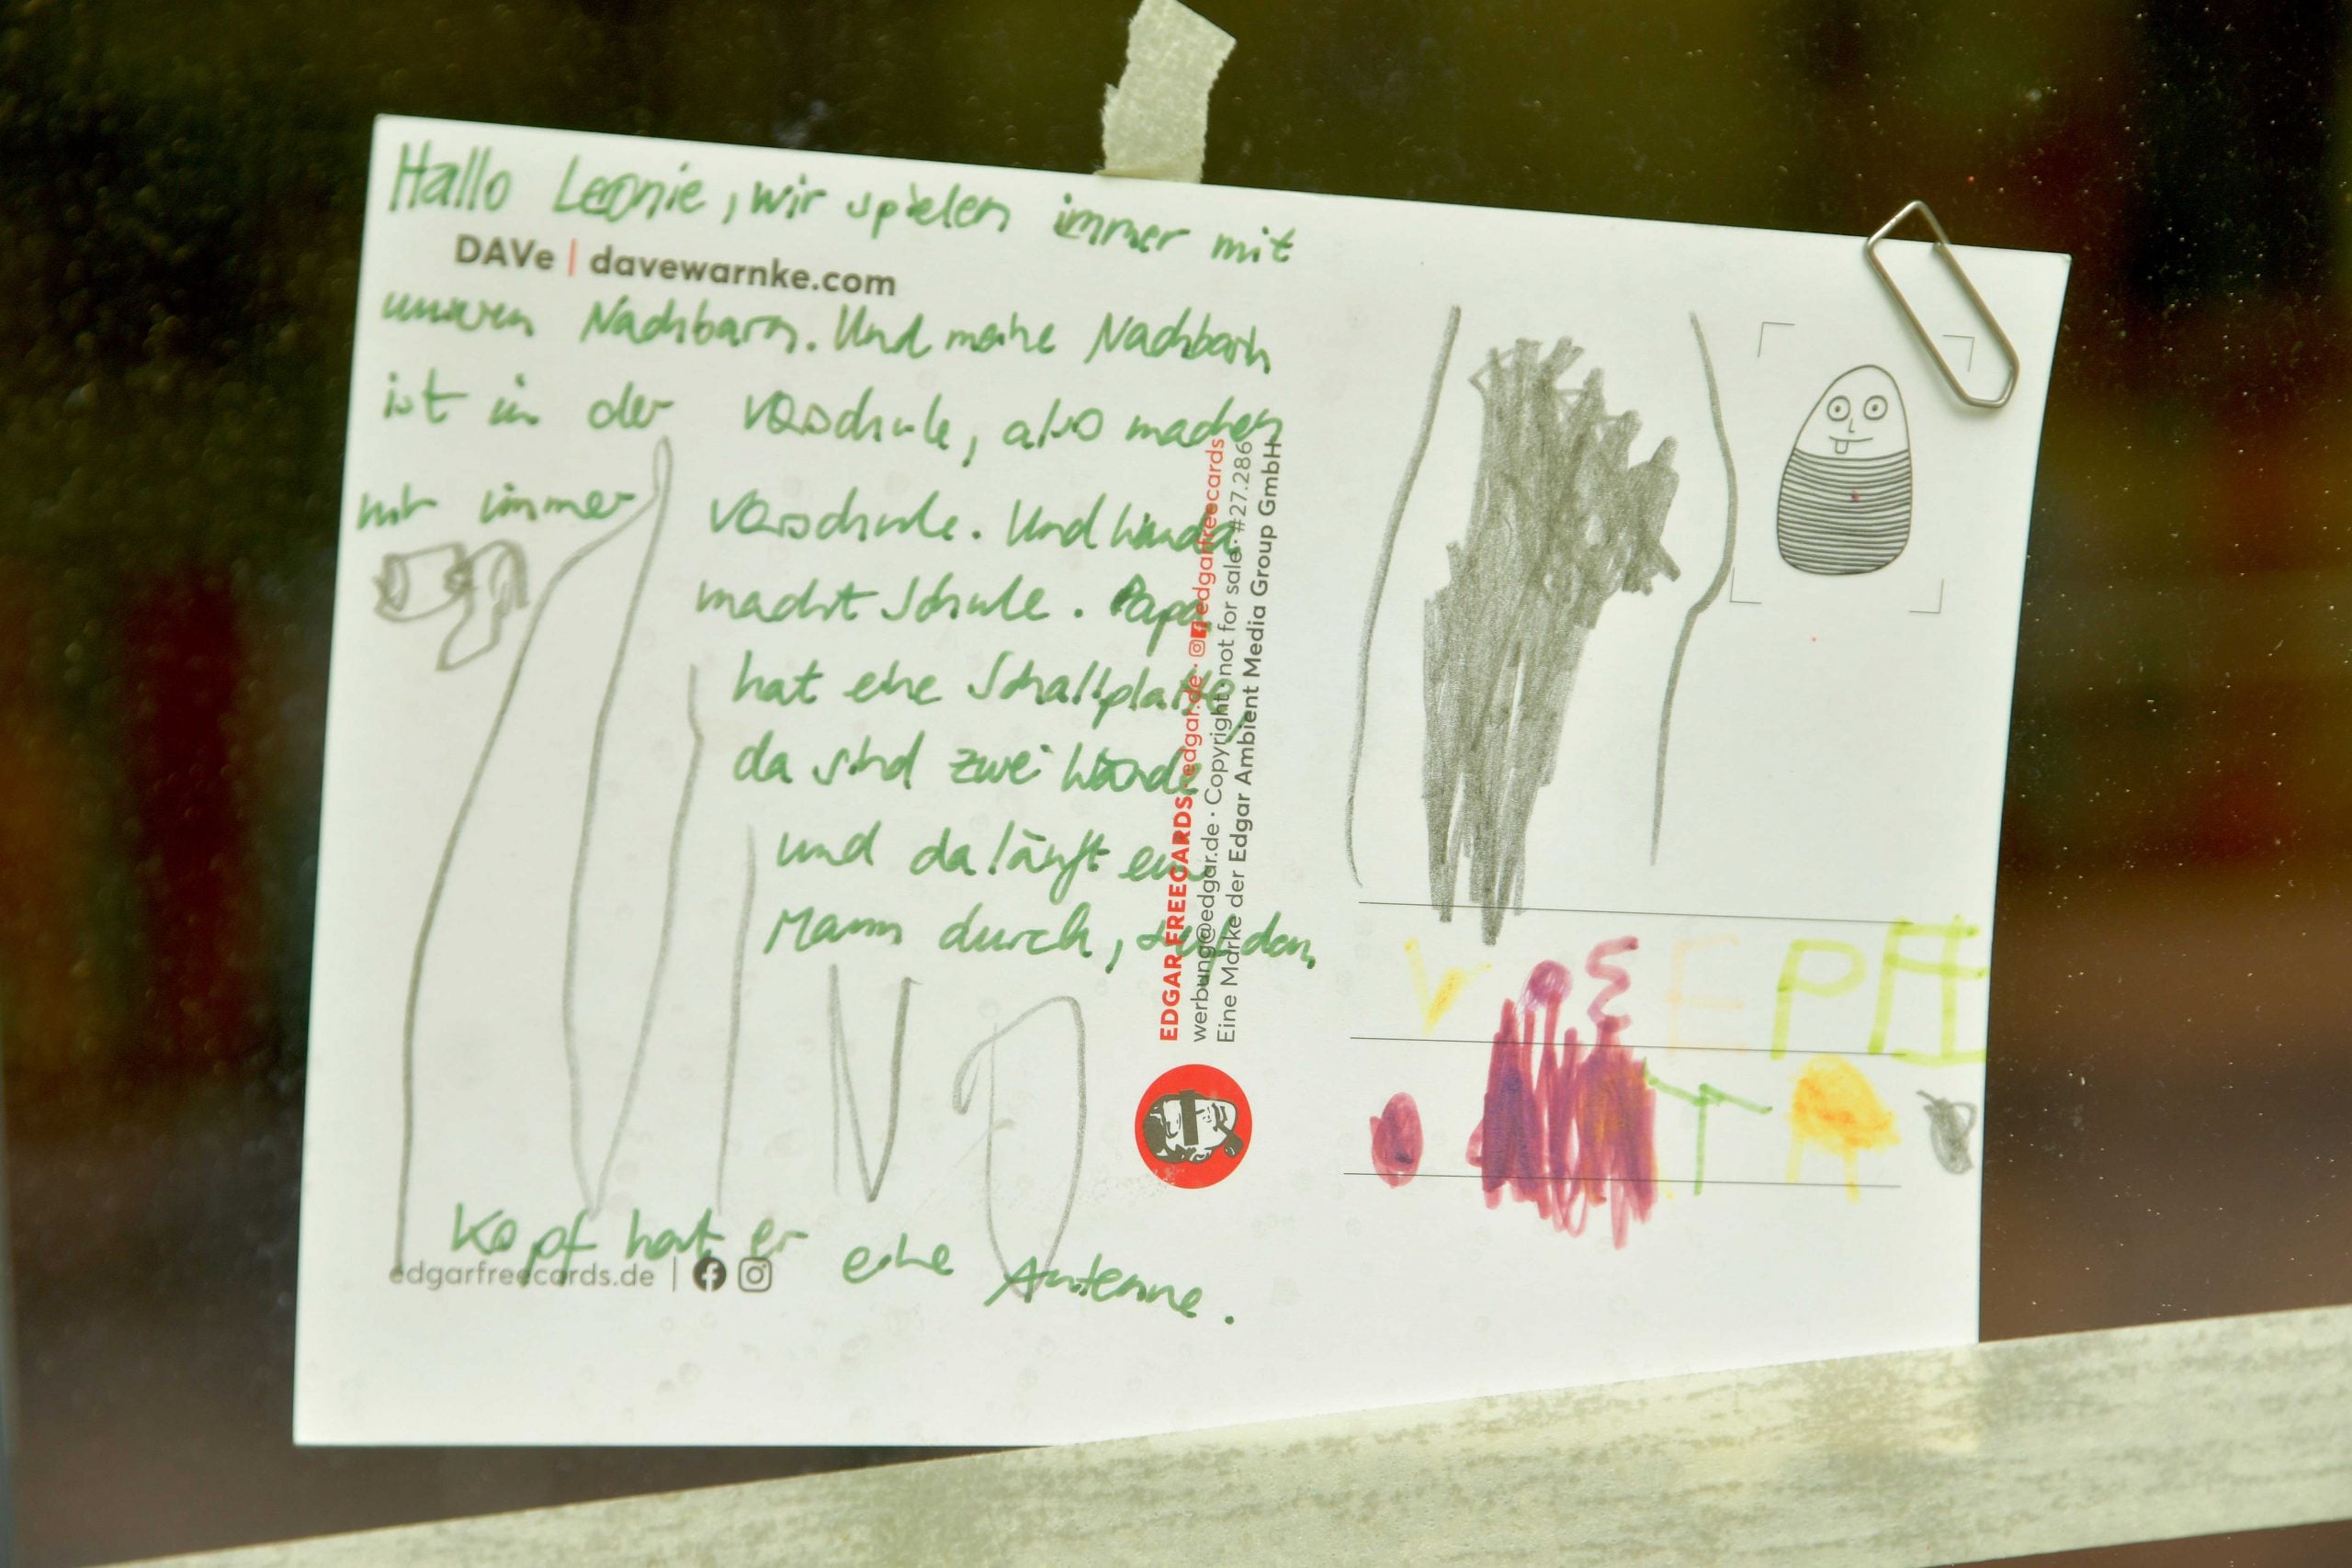 Hallo Leonie, wir spielen immer mit
DAVe | davewarnke.com
unseren Nachbarn. Und meine Nachbarin
ist in der Vorschule, also machen
wir immer Vorschule. Und
macht Schule. Papa
hat eine Schallplatte,
da sind zwei Wände
und da läuft ein
Mann durch, auf dem
Kopf hat er eine Antenne.
edgarfreecards.de |
EDGAR FREECARDS · edgar.de · edgarfreecards
werbung@edgar.de · Copyright not for sale · #27.286
Eine Marke der Edgar Ambient Media Group GmbH